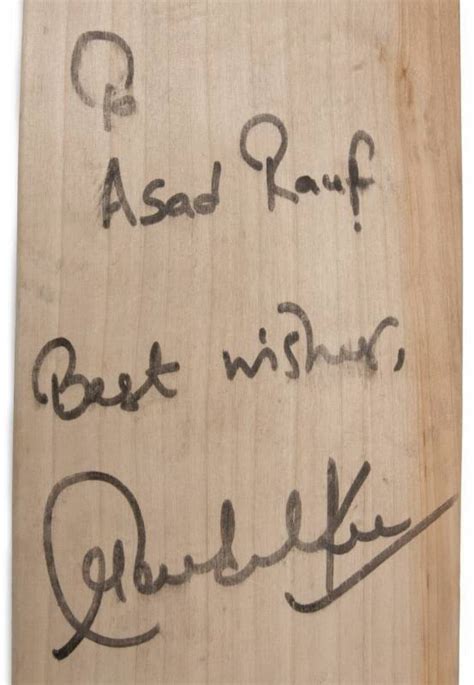 To
Asad Rauf
Best wishes,